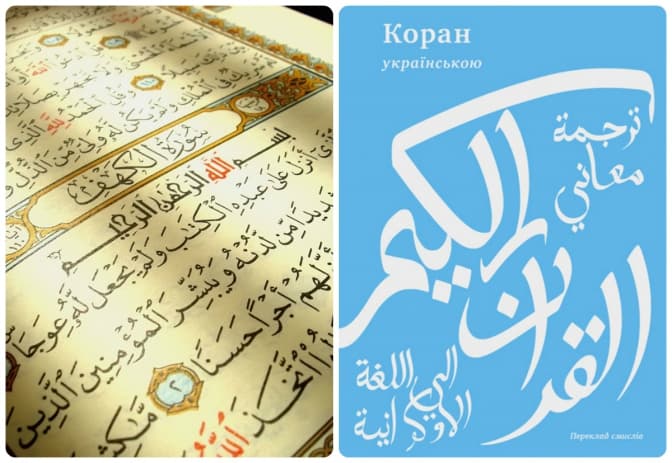 وَلَمْ يَكُن لَّهُۥ وَلِىٌّ مِّنَ ٱلذُّلِّ
سُورَةُ الْكَهْفِ
بِسْمِ ٱللَّهِ ٱلرَّحْمَٰنِ ٱلرَّحِيمِ
أَنزَلَ عَلَىٰ عَبْدِهِ ٱلْكِتَٰبَ وَلَمْ يَجْعَل لَّهُۥ عِوَجَا
مِّن لَّدُنْهُ وَيُبَشِّرَ ٱلْمُؤْمِنِينَ ٱلَّذِينَ
لَهُمْ أَجْرًا حَسَنًا ٢ مَّٰكِثِينَ
ٱتَّخَذَ ٱللَّهُ
Коран
українською
ترجمة
معاني
القرآن الكريم
إلى اللغة
الأوكرانية
Переклад смислів